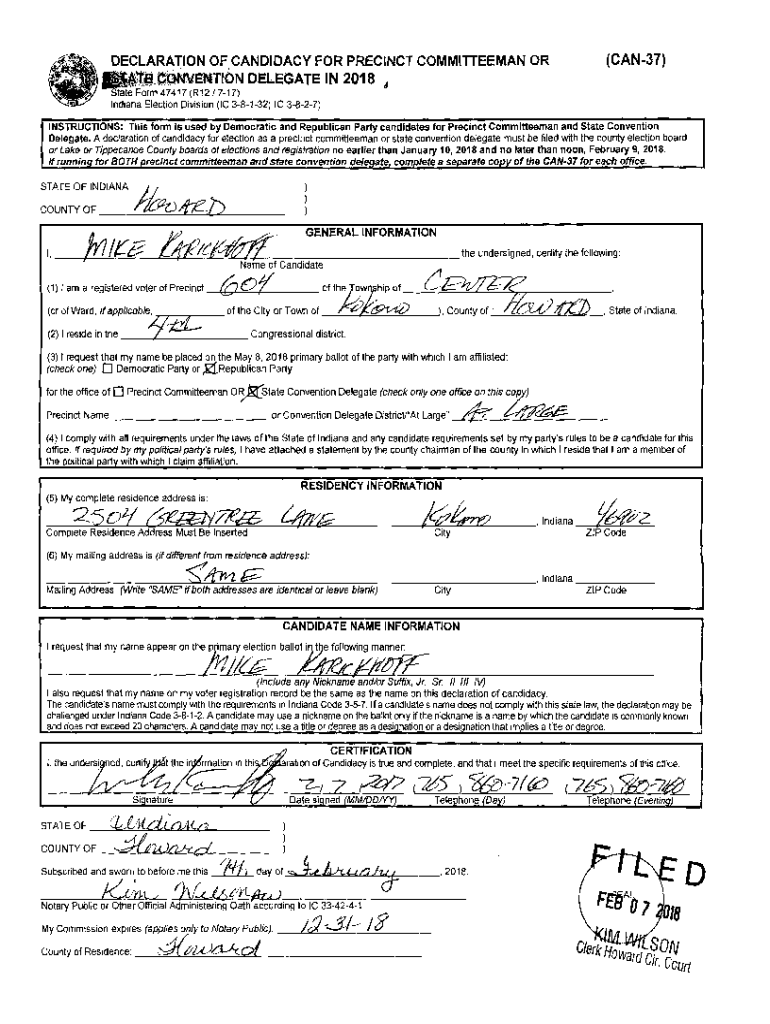 DECLARATION OF CANDIDACY FOR PRECINCT COMMITTEEMAN OR (CAN-37)
STATE CONVENTION DELEGATE IN 2018
State Form 47417 (R12 / 7-17)
Indiana Election Division (IC 3-8-1-32; IC 3-8-2-7)
INSTRUCTIONS: This form is used by Democratic and Republican Party candidates for Precinct Committeeman and State Convention
Delegate. A declaration of candidacy for election as a precinct committeeman or state convention delegate must be filed with the county election board
or Lake or Tippecanoe County boards of elections and registration no earlier than January 10, 2018 and no later than noon, February 9, 2018.
If running for BOTH precinct committeeman and state convention delegate, complete a separate copy of the CAN-37 for each office.
STATE OF INDIANA )
)
COUNTY OF HOWARD )
GENERAL INFORMATION
I, MIKE KARICKHOFF the undersigned, certify the following:
Name of Candidate
(1) I am a registered voter of Precinct 604 of the Township of CENTER ,
(or of Ward, if applicable, of the City or Town of Kokomo ), County of HOWARD , State of Indiana.
(2) I reside in the 4th Congressional district.
(3) I request that my name be placed on the May 8, 2018 primary ballot of the party with which I am affiliated:
(check one) ☐ Democratic Party or ☒ Republican Party
for the office of ☐ Precinct Committeeman OR ☒ State Convention Delegate (check only one office on this copy)
Precinct Name or Convention District Delegate/"At Large" At LARGE
(4) I comply with all requirements under the laws of the State of Indiana and any candidate requirements set by my party's rules to be a candidate for this
office. If required by my political party's rules, I have attached a statement by the county chairman of the county in which I reside that I am a member of
the political party with which I claim affiliation.
RESIDENCY INFORMATION
(5) My complete residence address is:
2504 GREENTREE LANE Kokomo , Indiana 46902
Complete Residence Address Must Be Inserted City ZIP Code
(6) My mailing address is (if different from residence address):
SAME , Indiana
Mailing Address (Write "SAME" if both addresses are identical or leave blank) City ZIP Code
CANDIDATE NAME INFORMATION
I request that my name appear on the primary election ballot in the following manner:
MIKE KARICKHOFF
(Include any Nickname and/or Suffix, Jr. Sr. II III IV)
I also request that my name on my voter registration record be the same as the name on this declaration of candidacy.
The candidate's name must comply with the requirements in Indiana Code 3-5-7. If a candidate's name does not comply with this state law, the declaration may be
challenged under Indiana Code 3-8-1-2. A candidate may use a nickname on the ballot only if the nickname is a name by which the candidate is commonly known
and does not exceed 20 characters. A candidate may not use a title or degree as a designation or a designation that implies a title or degree.
CERTIFICATION
I, the undersigned, certify that the information in this Declaration of Candidacy is true and complete, and that I meet the specific requirements of this office.
2, 7, 2017 (765) 860-7160 (765) 860-7160
Signature Date signed (MM/DD/YY) Telephone (Day) Telephone (Evening)
STATE OF Indiana )
COUNTY OF Howard )
Subscribed and sworn to before me this 7th day of February , 2018.
Kim Wilson
Notary Public or Other Official Administering Oath according to IC 33-42-4-1
My Commission expires (applies only to Notary Public): 12-31-18
County of Residence: Howard
FILED
SEAL
FEB 07 2018
KIM WILSON
Clerk Howard Cir. Court